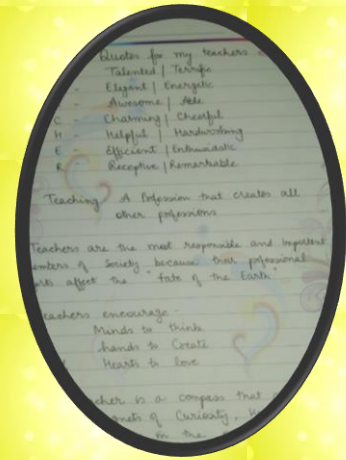 Quotes for my teachers
Talented | Terrific
- Elegant | Energetic
- Awesome | Able
C - Charming | Cheerful
H - Helpful | Hardworking
E - Efficient | Enthusiastic
R - Receptive | Remarkable
Teaching A Profession that creates all
other professions
Teachers are the most responsible and Important
members of Society because their professional
affect the "fate of the Earth"
Teachers encourage -
Minds to think
hands to Create
Hearts to love
is a compass that
of Curiosity,
in the